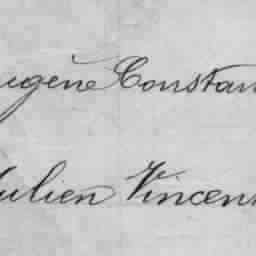 ugène Constan
Julien Vincen